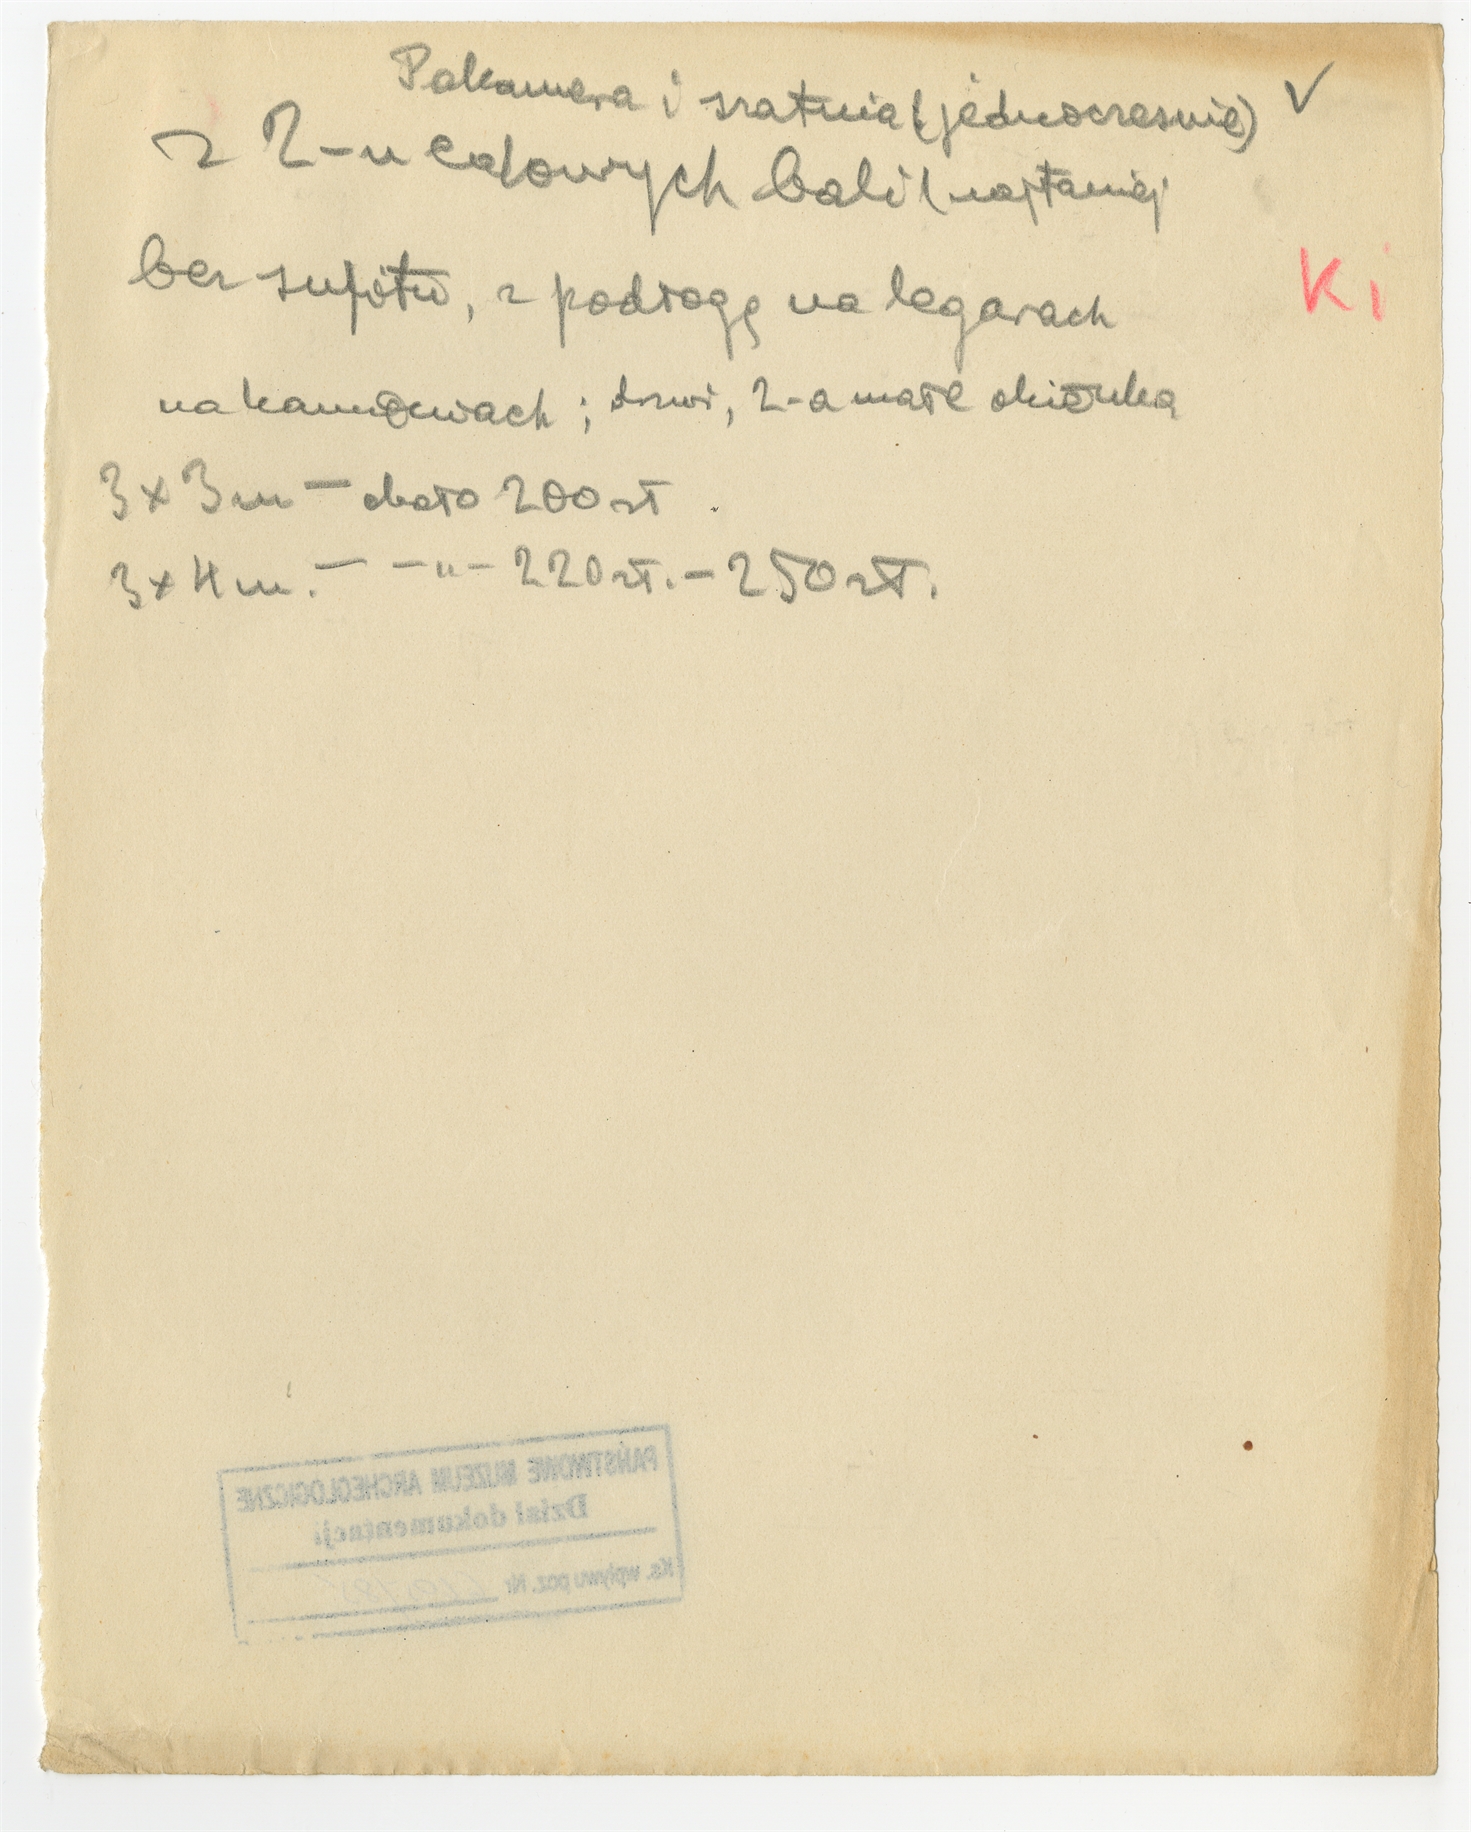 Pakamera i szatnia (jednocześnie) V
z 2-u calowych bali (najtaniej
bez sufitu, z podłogą na legarach
na kamieniach ; drzwi, 2-a małe okienka
Ki
3 x 3 m — około 200 zł
3 x 4 m. — -"- 220 zł. - 250 zł.
PAŃSTWOWE MUZEUM ARCHEOLOGICZNE
Dział dokumentacji
Ks. wpływu poz. Nr